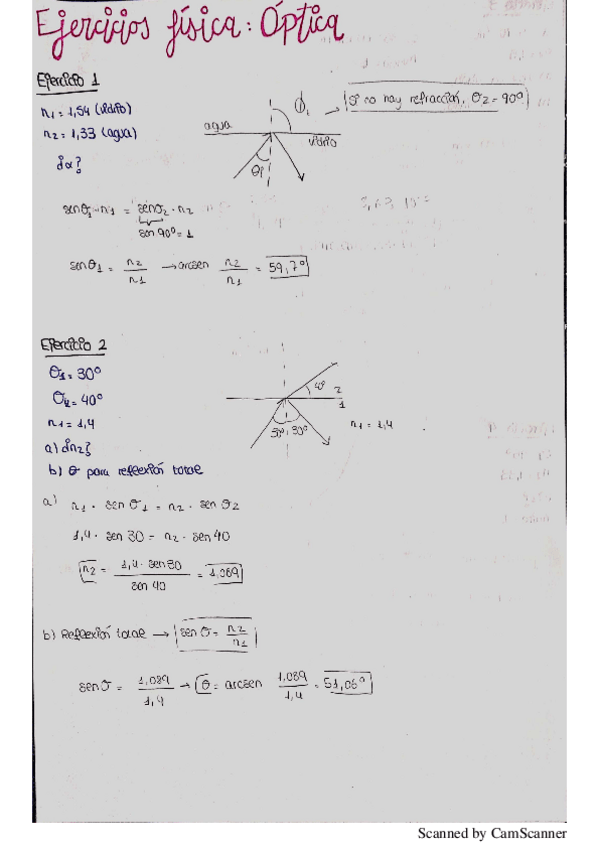 Ejercicios física: Óptica
Ejercicio 1
n1 = 1,54 (vidrio)
n2 = 1,33 (agua)
¿α?
agua
vidrio
θ1
Si no hay refracción, θ2 = 90º
senθ1·n1 = senθ2 · n2
sen 90º = 1
senθ1 = n2/n1 → arcsen n2/n1 = 59,7º
Ejercicio 2
θ1 = 30º
θ2 = 40º
n1 = 1,4
a) ¿n2?
b) θ para reflexión total
40º
2
1
30º 30º
n1 = 1,4
a) n1 · sen θ1 = n2 · sen θ2
1,4 · sen 30 = n2 · sen 40
n2 = 1,4 · sen 30 / sen 40 = 1,089
b) Reflexión total → sen θ = n2/n1
sen θ = 1,089/1,4 → θ = arcsen 1,089/1,4 = 51,06º
Scanned by CamScanner